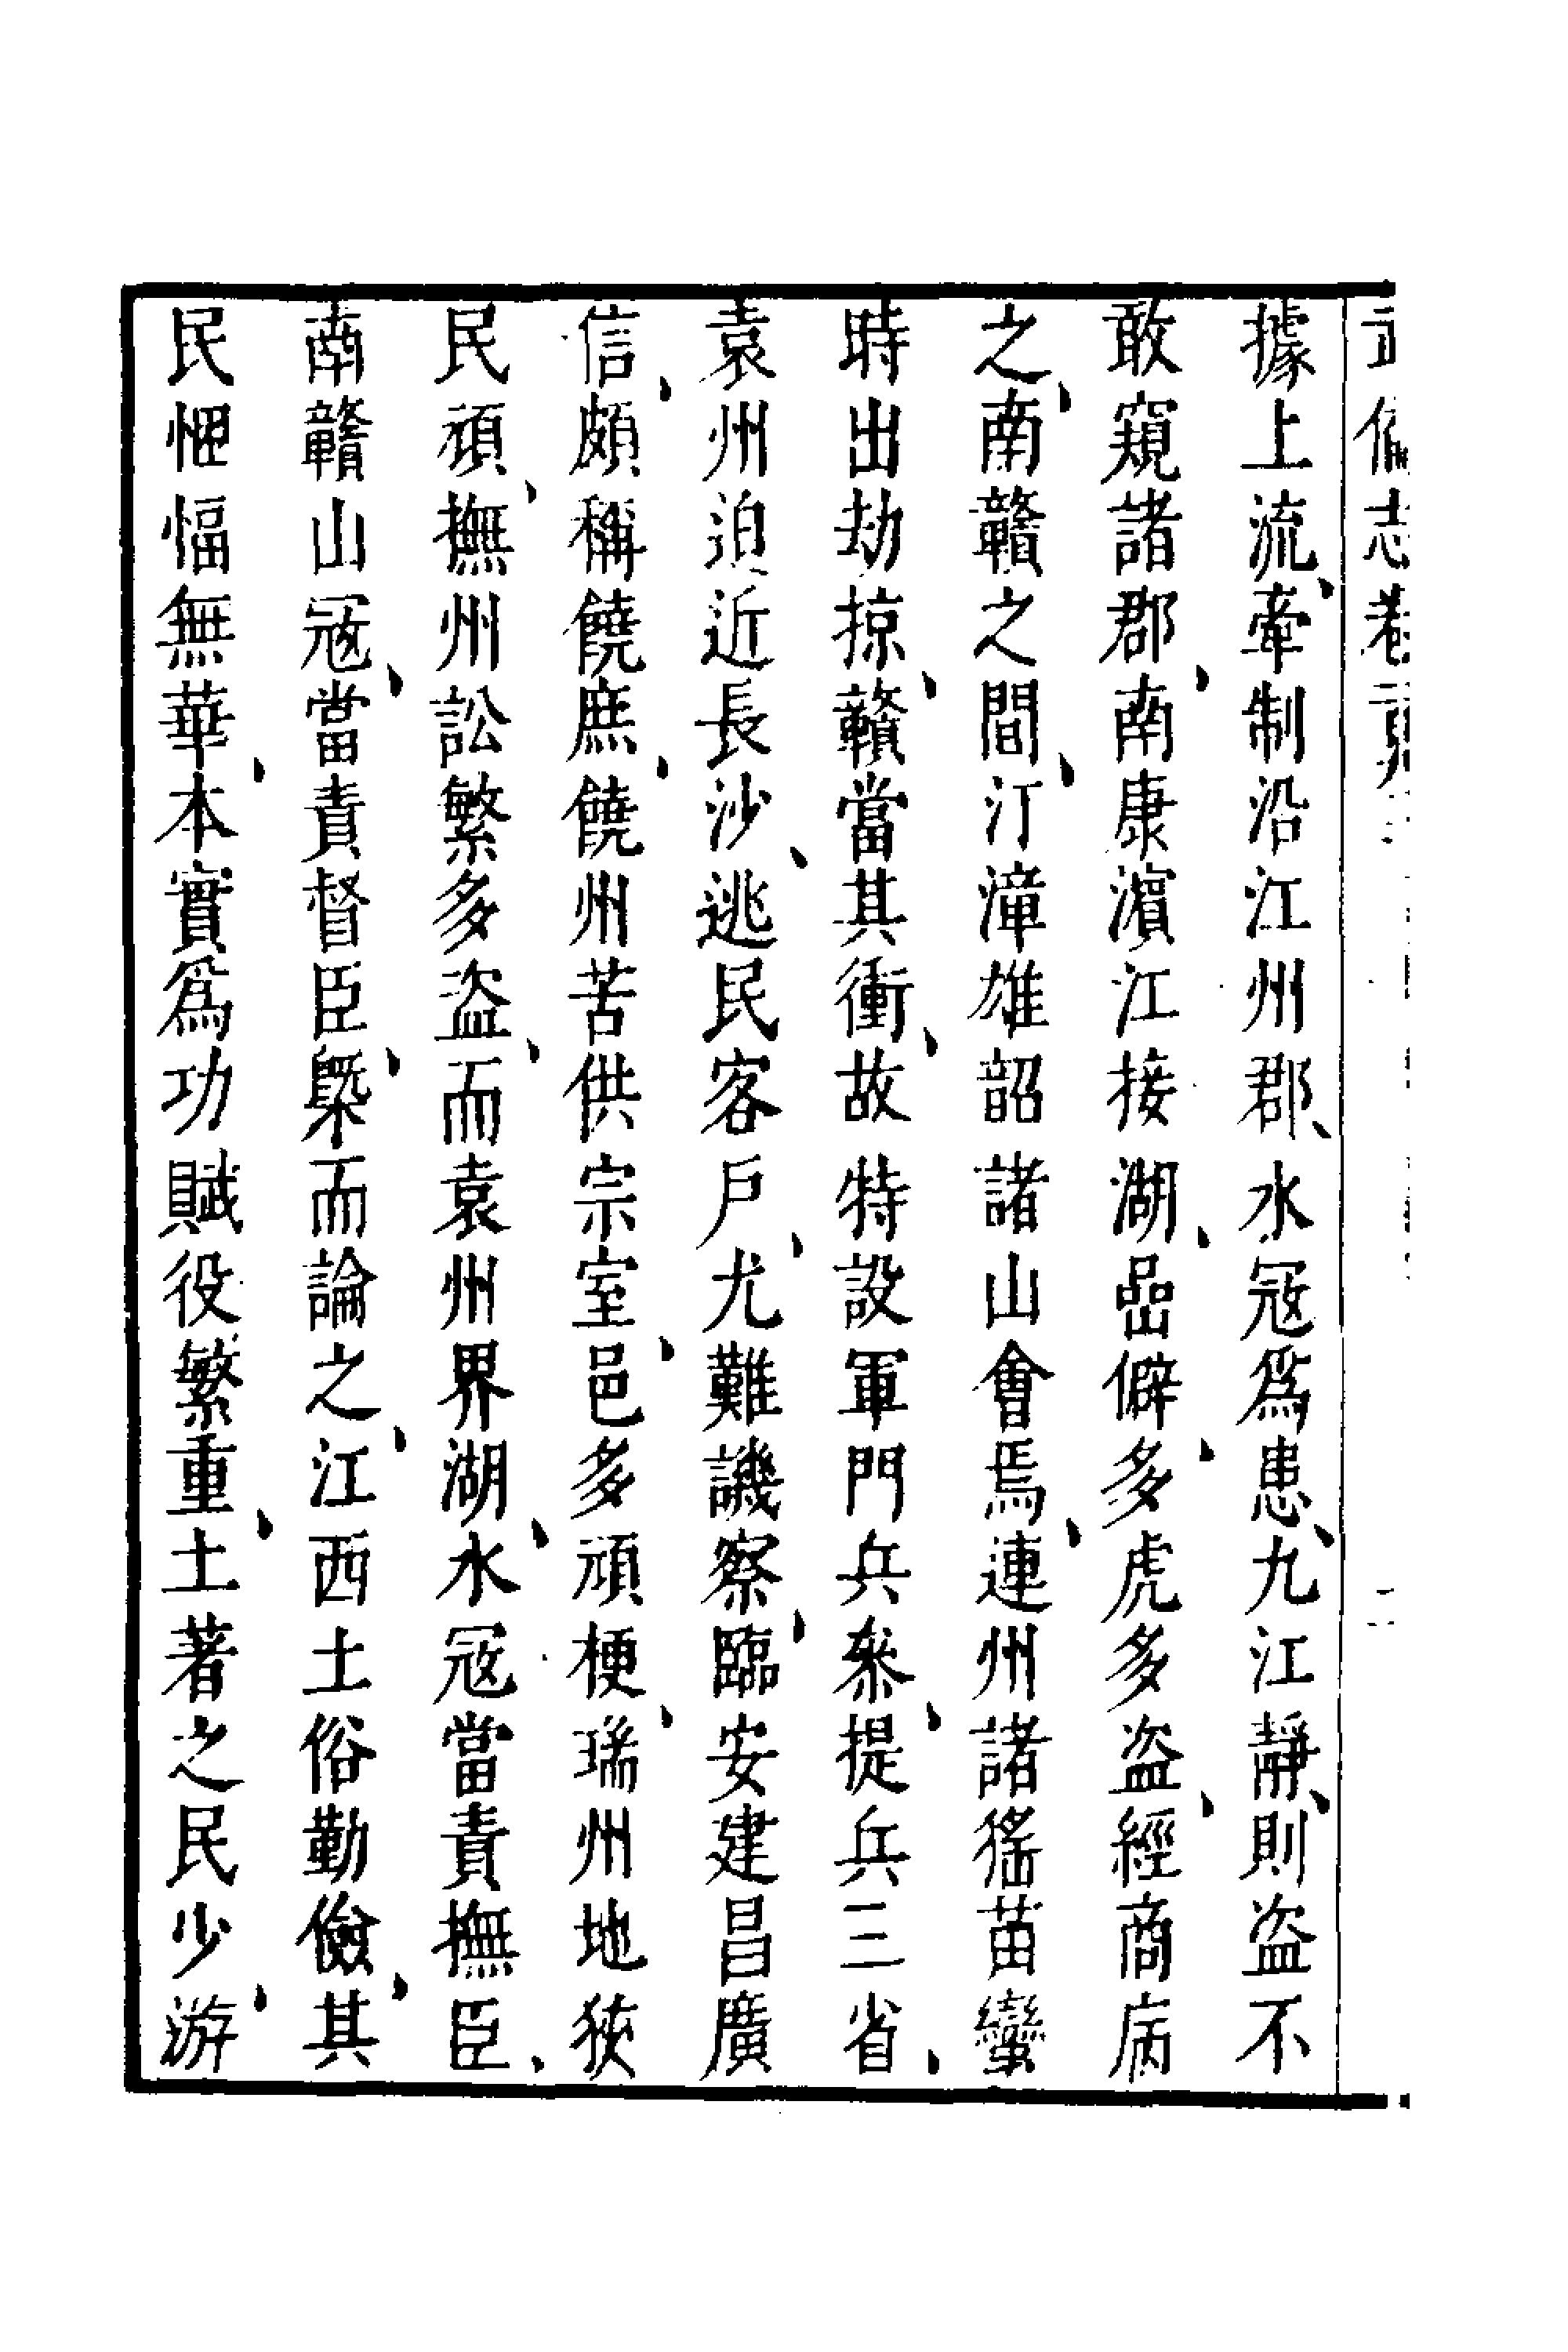 據上流、牽制沿江州郡、水冦爲患、九江靜、則盗不
敢窺諸郡、南康濵江接湖、嵒僻、多虎多盗、經商病
之、南贛之間、汀漳雄韶諸山會焉、連州諸猺苗蠻
時出劫掠、贛當其衝、故特設軍門兵叅、提兵三省、
袁州迫近長沙、逃民客戶、尤難譏察、臨安建昌廣
信、頗稱饒庶、饒州苦供宗室、邑多頑梗、瑞州地狹
民頑、撫州訟繁多盗、而袁州界湖、水冦當責撫臣、
南贛山冦、當責督臣、槩而論之、江西土俗勤儉、其
民悃愊無華、本實爲功賦役繁重、土著之民少、游